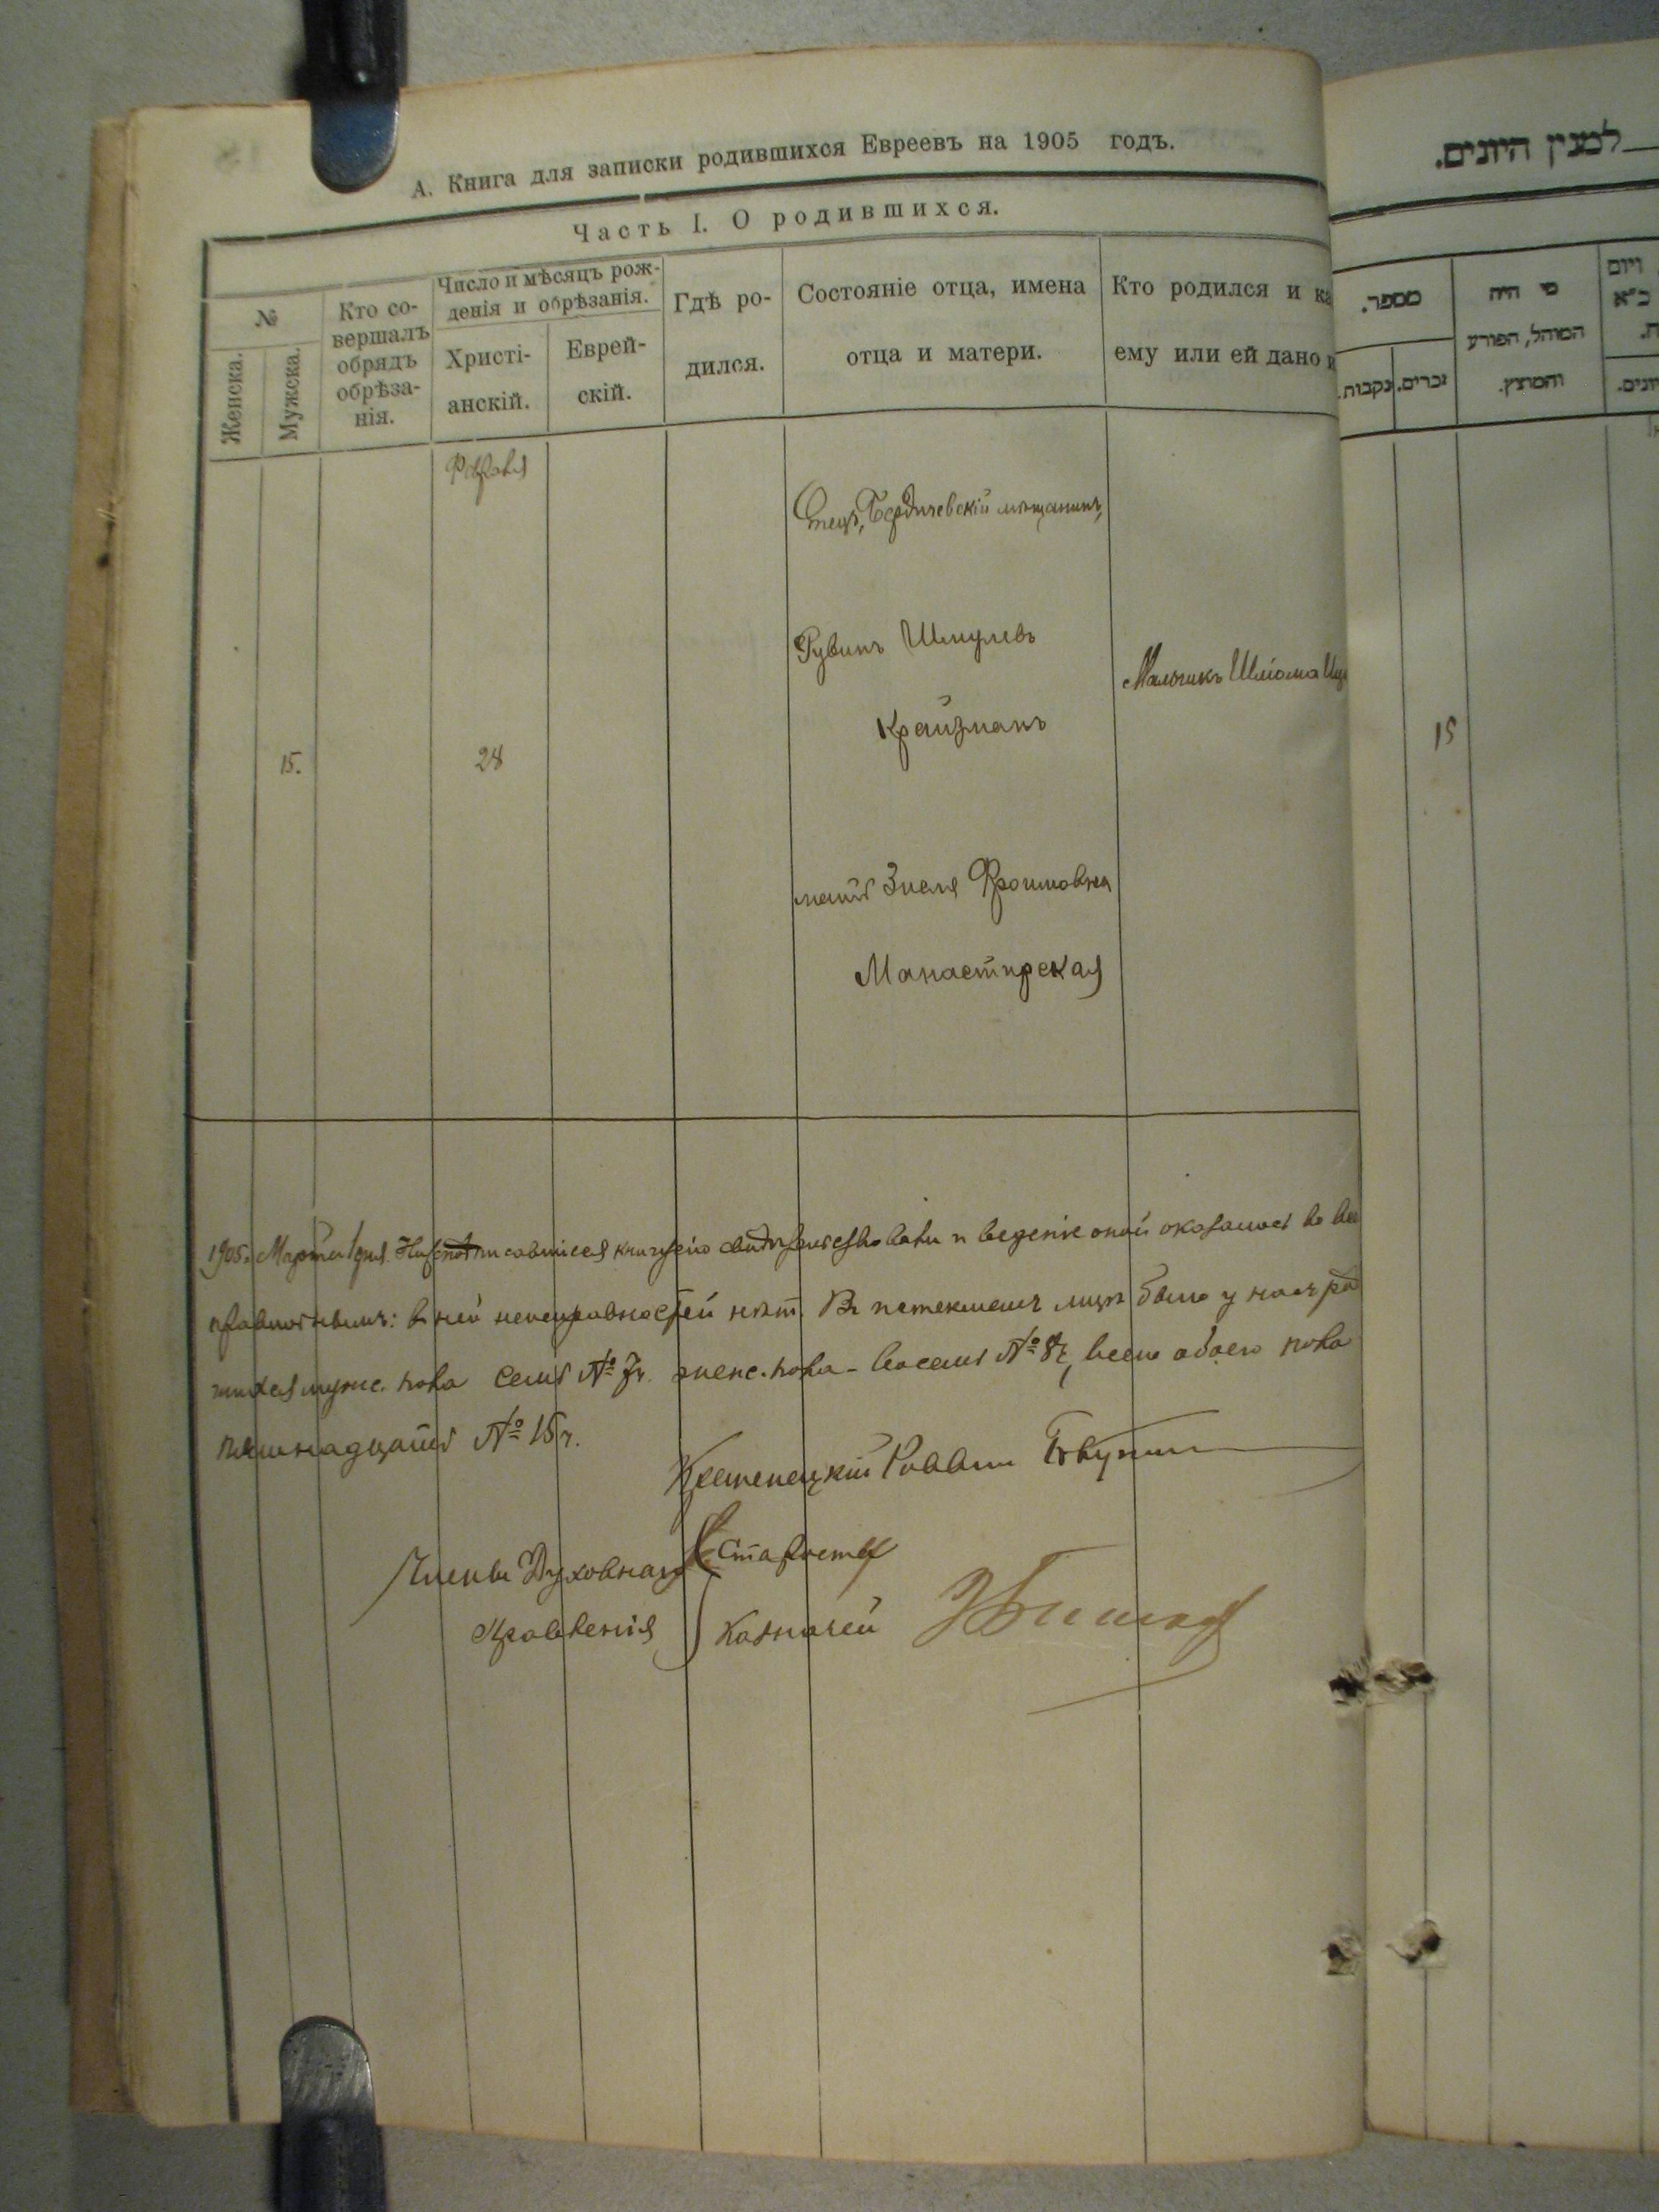 А. Книга для записки родившихся Евреевъ на 1905 годъ.
Часть I. О родившихся.
№
Женска.
Мужска.
Кто со-
вершалъ
обрядъ
обрѣза-
нія.
Число и мѣсяцъ рож-
денія и обрѣзанія.
Христі-
анскій.
Еврей-
скій.
Гдѣ ро-
дился.
Состояніе отца, имена
отца и матери.
Кто родился и ка
ему или ей дано
Февраля
Отецъ, Бердичевскій мѣщанинъ,
Рувинъ Шмулевъ
Крайзманъ
Мальчикъ Шліома
15.
28
мать Зисля Фроимовна
Манастирская
1905 г. Марта 1 дня. книгу сію свидѣтельствовали и веденіе оной оказалось во
правильнымъ: в ней неисправностей нѣтъ. Въ истекшемъ мцѣ было у насъ
муже. пола семь № 7 ч. женс. пола - восемь № 8 ч, всего обоего пола
пятнадцать № 15 ч.
Кременецкій Раввинъ
Члены Духовнаго
Правленія
Староста
Казначей
למנין היונים.
מספר.
נקבות.
זכרים.
מי היה
המוהל, הפורע
והמוצץ.
ויום
15